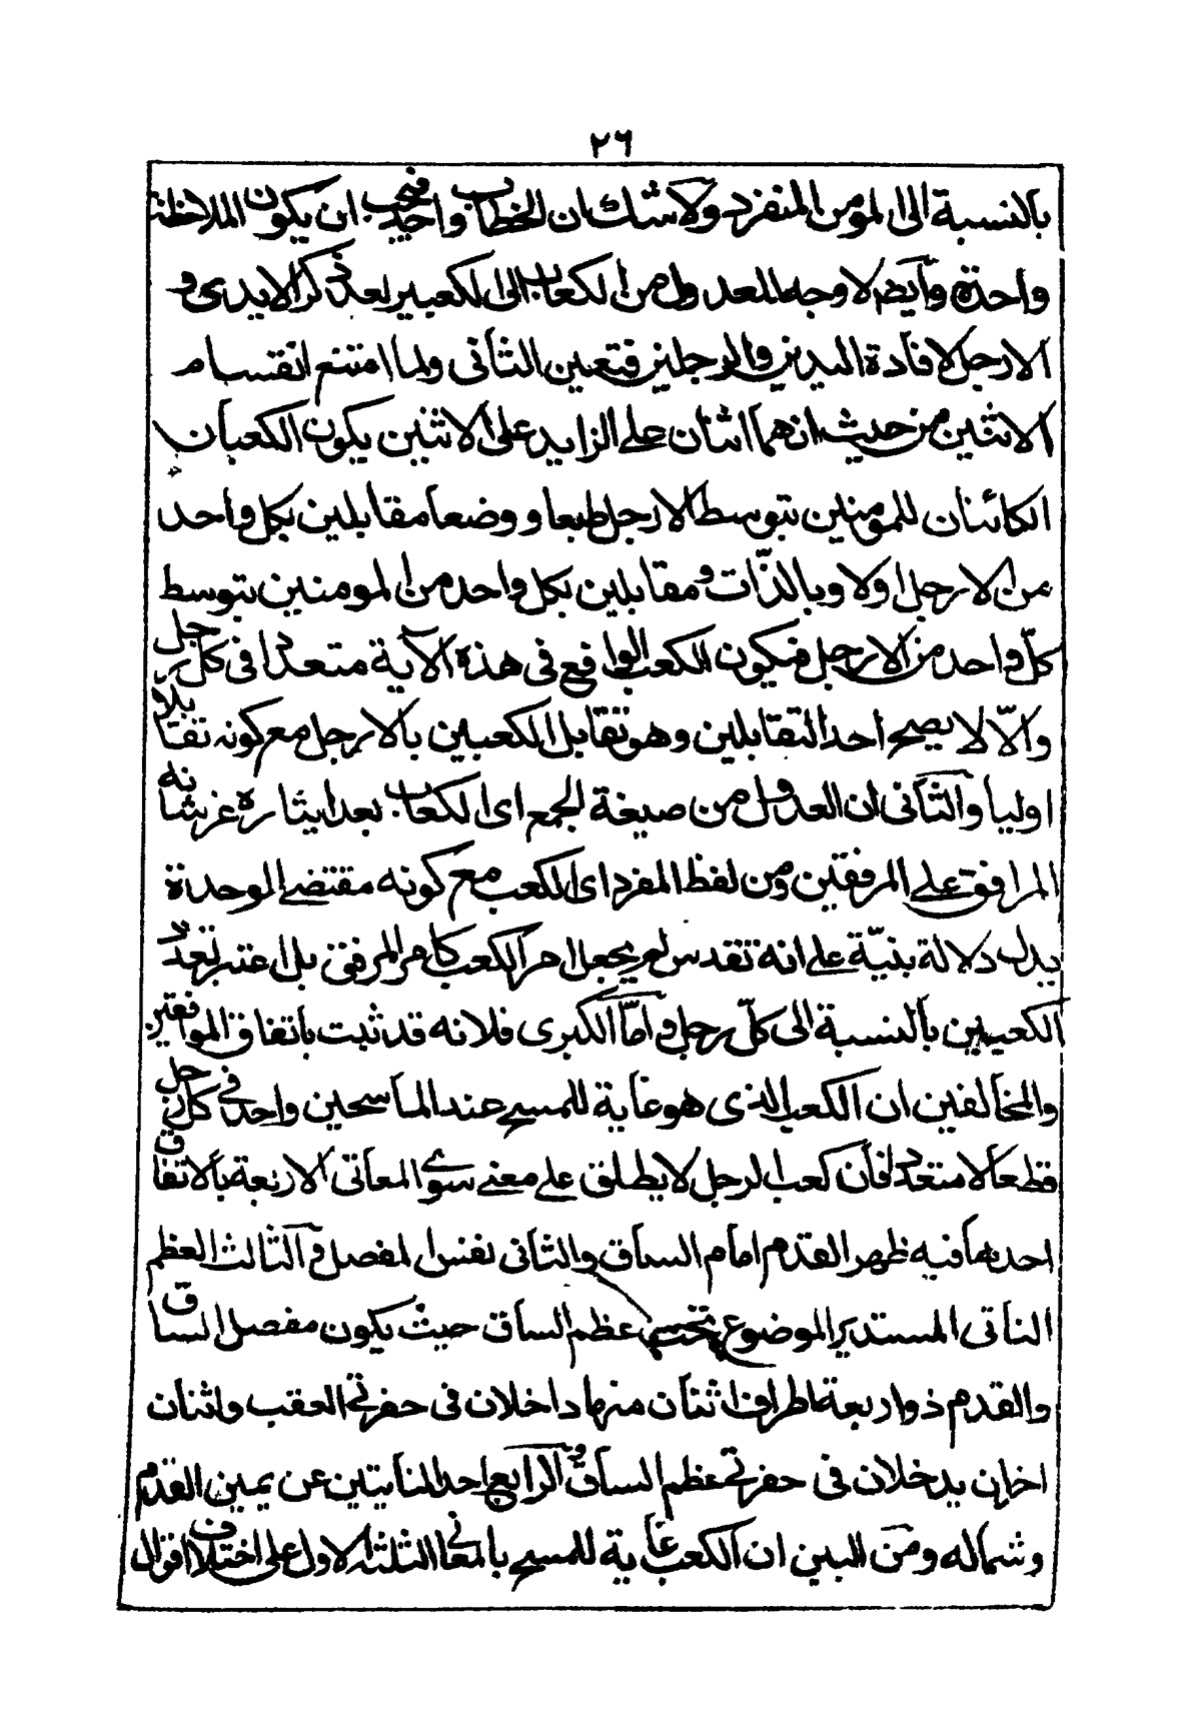 ٢٦
بالنسبة الى المومن المنفرد ولا شك ان الخطاب واحد فيجب ان يكون الملاحظة
واحدة وايضا لا وجه للعدول من الكعاب الى الكعبين بعد ذكر الايدى و
الارجل لافادة اليدين والرجلين فتعين الثانى ولما امتنع انقسام
الاثنين من حيث انهما اثنان على الزايد على الاثنين يكون الكعبان
الكائنان للمومنين بتوسط الارجل طبعا ووضعا مقابلين بكل واحد
من الارجل اولا وبالذات ومقابلين بكل واحد من المومنين بتوسط
كل واحد من الارجل فيكون الكعب الواقع فى هذه الآية متعددا فى كل رجل
والّا لا يصح احد التقابلين وهو تقابل الكعبين بالارجل مع كونه تقابلا
اوليا والثانى ان العدول من صيغة الجمع اى الكعاب بعد ايثاره عز شانه
المرافق على المرفقين ومن لفظ المفرد اى الكعب مع كونه مقتضى الوحدة
يدل دلالة بنيّة على انه تقدس لم يجعل امر الكعب كامر المرفق بل اعتبر تعدد
الكعبين بالنسبة الى كلّ رجل و امّا الكبرى فلانه قد ثبت باتفاق الموافقين
والمخالفين ان الكعب الذى هو غاية للمسح عند الماسحين واحد فى كل رجل
قطعا لا متعدد فان كعب الرجل لا يطلق على معنى سوى المعانى الاربعة بالاتفاق
احدها فيه ظهر القدم امام الساق والثانى نفس المفصل و الثالث العظم
الناتى المستدير الموضوع تحت عظم الساق حيث يكون مفصل الساق
والقدم ذو اربعة اطراف اثنان منها داخلان فى حفرتى العقب واثنان
اخران يدخلان فى حفرتى عظم الساق و الرابع احد الناتيتين عن يمين القدم
وشماله ومن البين ان الكعب غاية للمسح بالمعانى الثلثة الاول على اختلاف اقوال